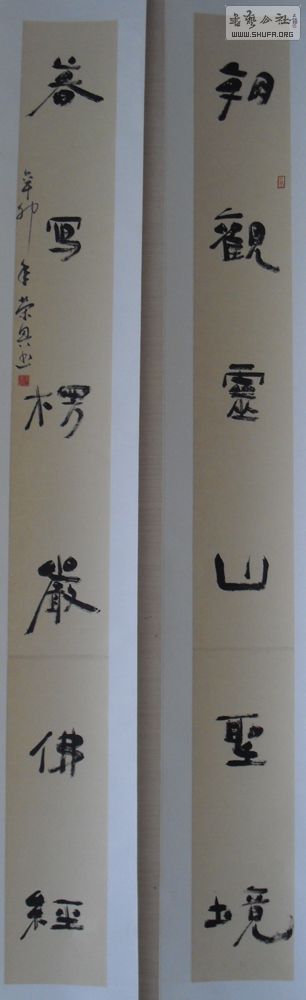 朝觀靈山聖境
暮写楞嚴佛經
辛卯年荣兴书
书艺公社
WWW.SHUFA.ORG